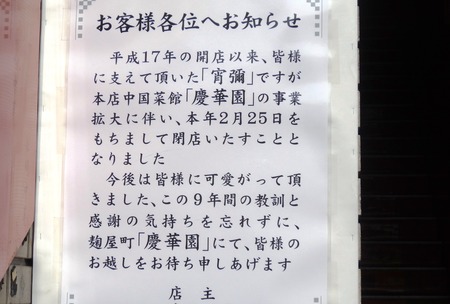 お客様各位へお知らせ
平成17年の開店以来、皆様
に支えて頂いた「宵彌」ですが
本店中国菜館「慶華園」の事業
拡大に伴い、本年2月25日を
もちまして閉店いたすことと
なりました
今後は皆様に可愛がって頂
きました、この9年間の教訓と
感謝の気持ちを忘れずに、
麹屋町「慶華園」にて、皆様の
お越しをお待ち申しあげます
店主